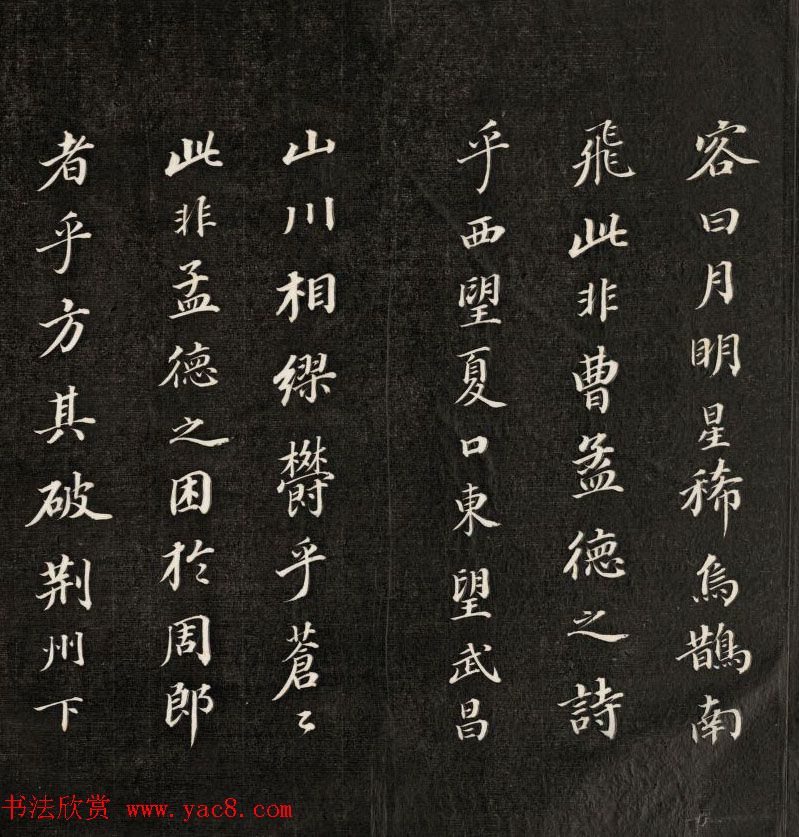 容曰月明星稀烏鵲南
飛此非曹孟德之詩
乎西望夏口東望武昌
山川相繆欝乎蒼〻
此非孟德之困於周郎
者乎方其破荆州下
书法欣赏 www.yac8.com